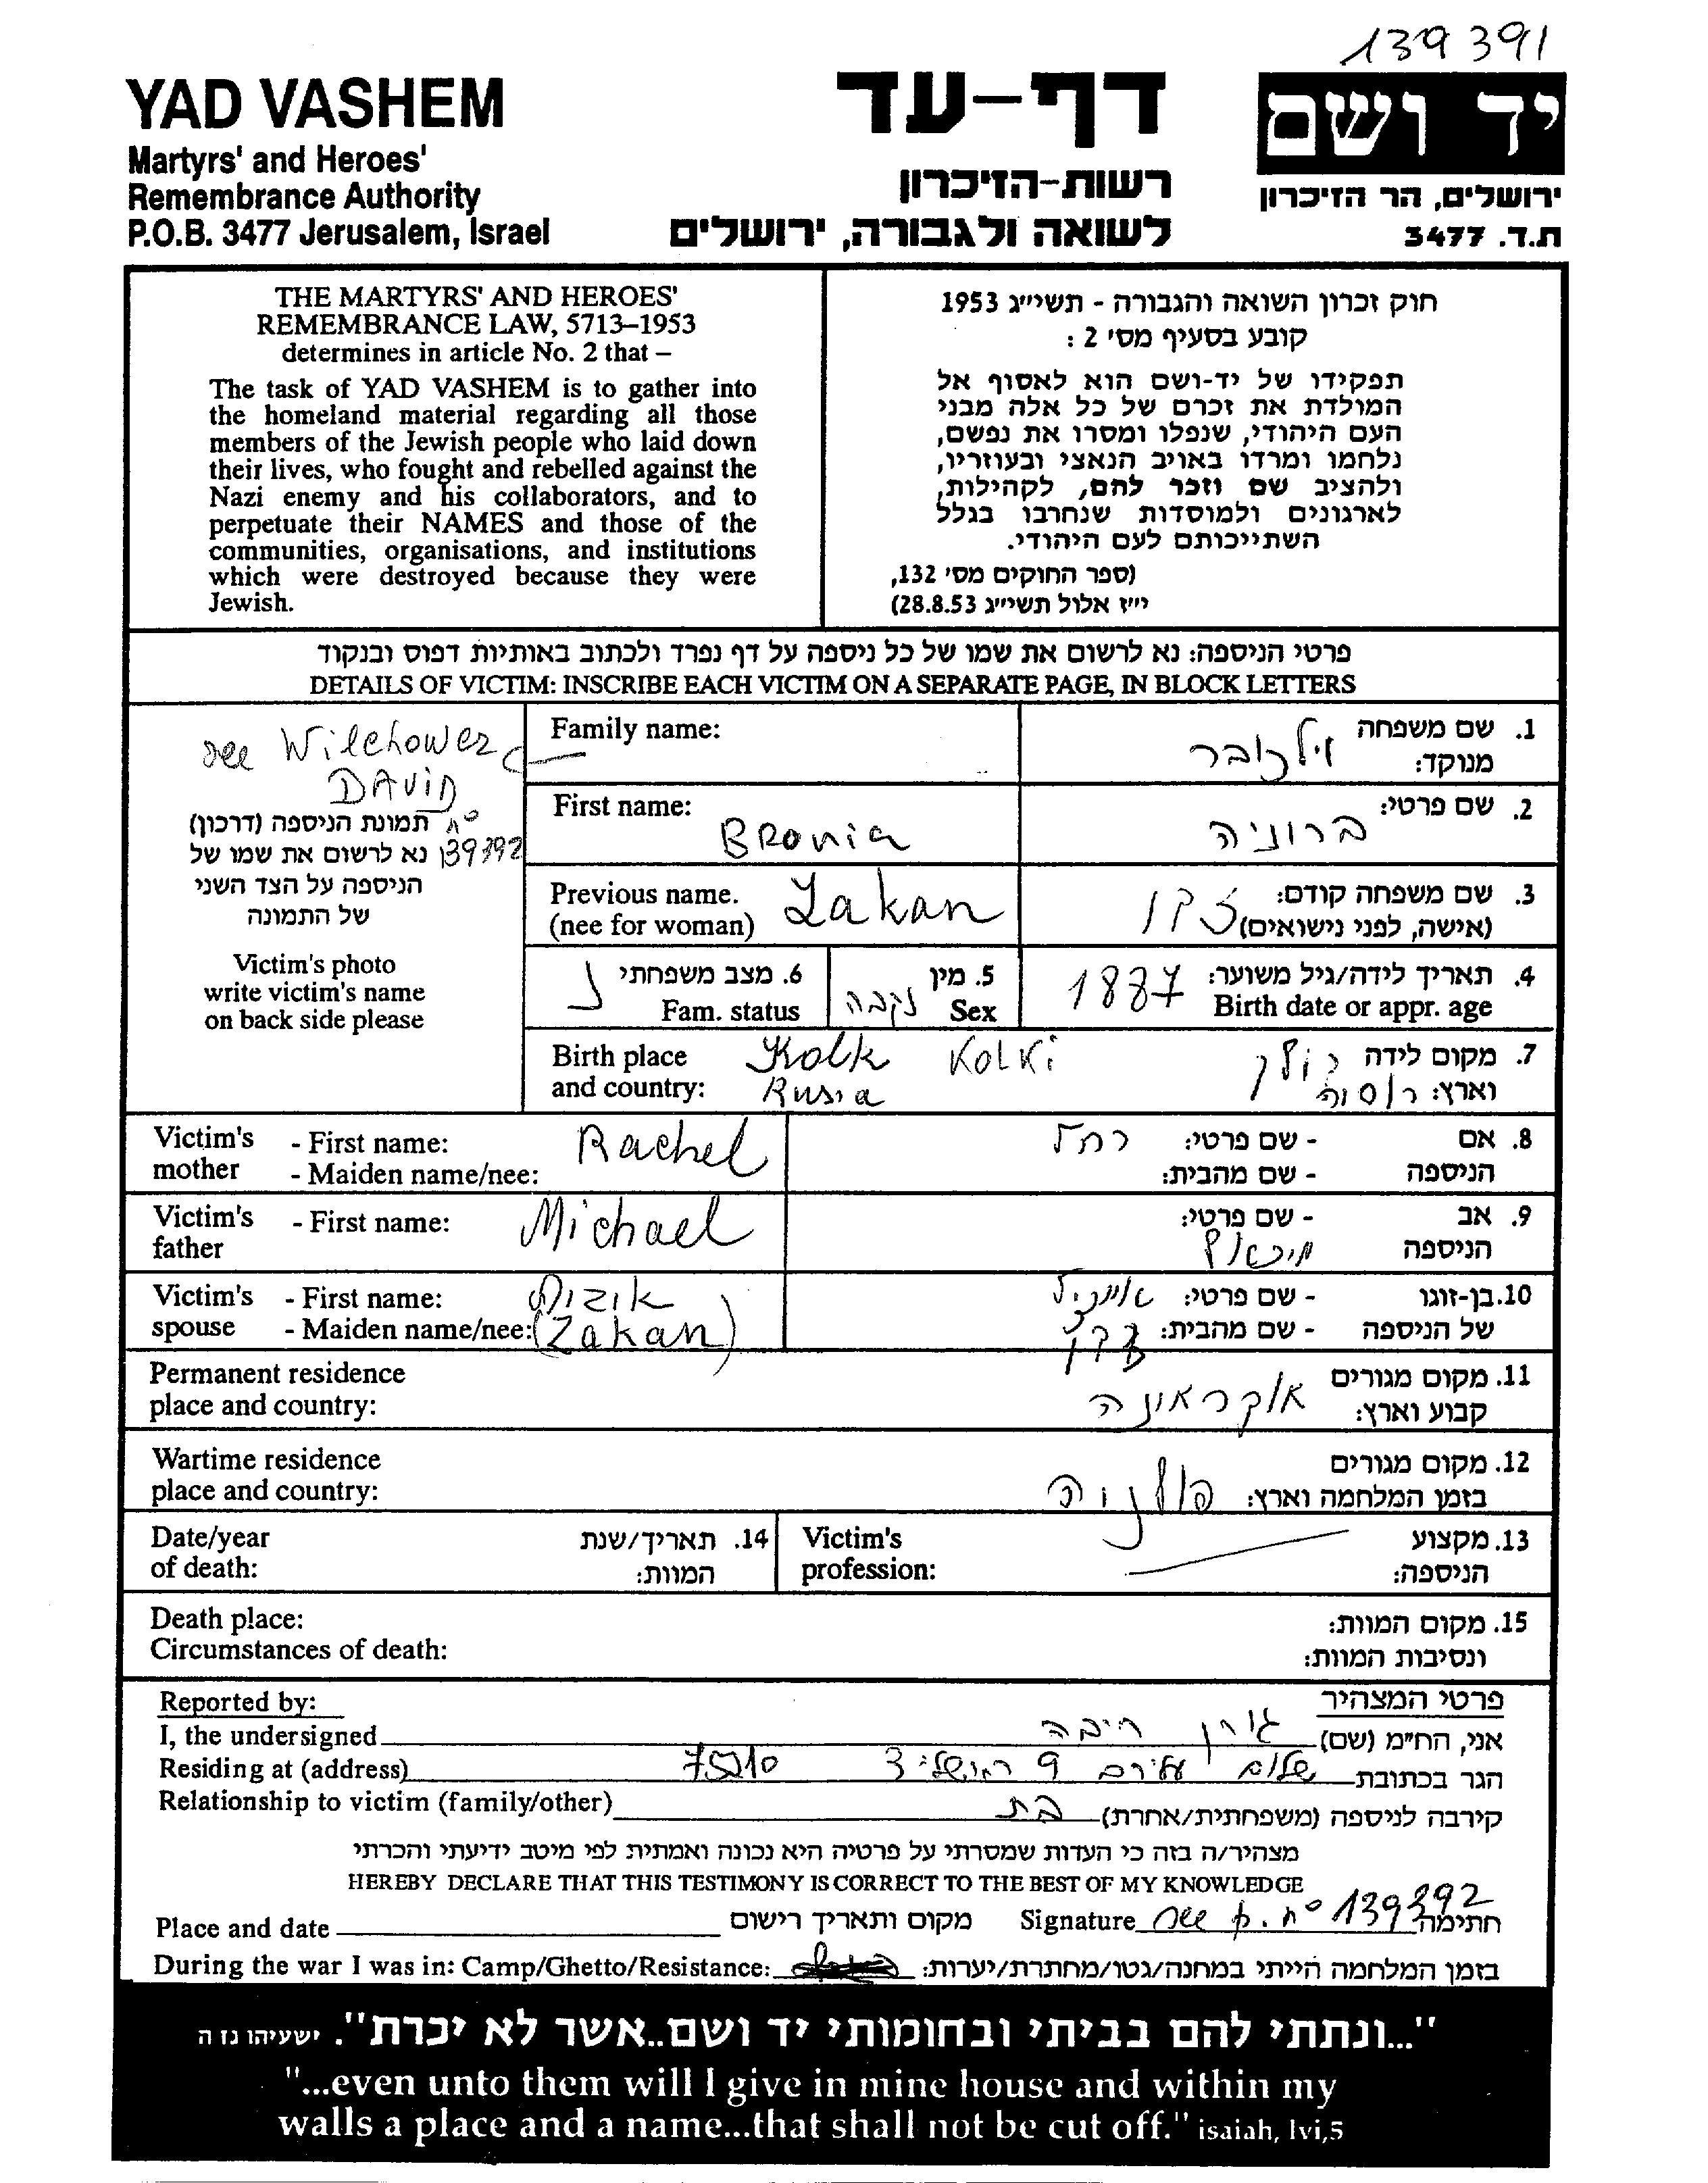 139391
YAD VASHEM
Martyrs' and Heroes'
Remembrance Authority
P.O.B. 3477 Jerusalem, Israel
דף-עד
רשות-הזיכרון
לשואה ולגבורה, ירושלים
יד ושם
ירושלים, הר הזיכרון
ת.ד. 3477
THE MARTYRS' AND HEROES'
REMEMBRANCE LAW, 5713–1953
determines in article No. 2 that –
The task of YAD VASHEM is to gather into
the homeland material regarding all those
members of the Jewish people who laid down
their lives, who fought and rebelled against the
Nazi enemy and his collaborators, and to
perpetuate their NAMES and those of the
communities, organisations, and institutions
which were destroyed because they were
Jewish.
חוק זכרון השואה והגבורה - תשי״ג 1953
קובע בסעיף מס' 2 :
תפקידו של יד-ושם הוא לאסוף אל
המולדת את זכרם של כל אלה מבני
העם היהודי, שנפלו ומסרו את נפשם,
נלחמו ומרדו באויב הנאצי ובעוזריו,
ולהציב שם וזכר להם, לקהילות,
לארגונים ולמוסדות שנחרבו בגלל
השתייכותם לעם היהודי.
(ספר החוקים מס' 132,
י״ז אלול תשי״ג 28.8.53)
פרטי הניספה: נא לרשום את שמו של כל ניספה על דף נפרד ולכתוב באותיות דפוס ובנקוד
DETAILS OF VICTIM: INSCRIBE EACH VICTIM ON A SEPARATE PAGE, IN BLOCK LETTERS
see Wilchower
DAVID
n° 139392
תמונת הניספה (דרכון)
נא לרשום את שמו של
הניספה על הצד השני
של התמונה
Victim's photo
write victim's name
on back side please
Family name:
1. שם משפחה
מנוקד:
וילכובר
First name: Bronia
2. שם פרטי: ברוניה
Previous name. Zakan
(nee for woman)
3. שם משפחה קודם:
(אישה, לפני נישואים) זקן
4. תאריך לידה/גיל משוער: 1887
Birth date or appr. age
5. מין נקבה
Sex
6. מצב משפחתי נ
Fam. status
Birth place Kolk KOLKI
and country: Rusia
7. מקום לידה קולק
וארץ: רוסיה
Victim's mother - First name: Rachel
- Maiden name/nee:
8. אם הניספה - שם פרטי: רחל
- שם מהבית:
Victim's father - First name: Michael
9. אב הניספה - שם פרטי:
מיכאל
Victim's spouse - First name: Aizik
- Maiden name/nee: (Zakan)
10. בן-זוגו של הניספה - שם פרטי:
- שם מהבית: זקן
Permanent residence
place and country:
11. מקום מגורים
קבוע וארץ: אוקראינה
Wartime residence
place and country:
12. מקום מגורים
בזמן המלחמה וארץ: פולניה
Date/year
of death:
14. תאריך/שנת
המוות:
Victim's
profession:
13. מקצוע
הניספה:
Death place:
Circumstances of death:
15. מקום המוות:
ונסיבות המוות:
Reported by:
פרטי המצהיר
I, the undersigned
אני, הח״מ (שם) גורן חיבה
Residing at (address)
הגר בכתובת שלום עליכם 9 ראשל״צ 75210
Relationship to victim (family/other)
קירבה לניספה (משפחתית/אחרת) בת
מצהיר/ה בזה כי העדות שמסרתי על פרטיה היא נכונה ואמתית לפי מיטב ידיעתי והכרתי
HEREBY DECLARE THAT THIS TESTIMONY IS CORRECT TO THE BEST OF MY KNOWLEDGE
Place and date מקום ותאריך רישום
Signature see p. n° 139392 חתימה
During the war I was in: Camp/Ghetto/Resistance:
בזמן המלחמה הייתי במחנה/גטו/מחתרת/יערות:
"...ונתתי להם בביתי ובחומותי יד ושם..אשר לא יכרת". ישעיהו נז ה
"...even unto them will I give in mine house and within my
walls a place and a name...that shall not be cut off." isaiah, lvi,5